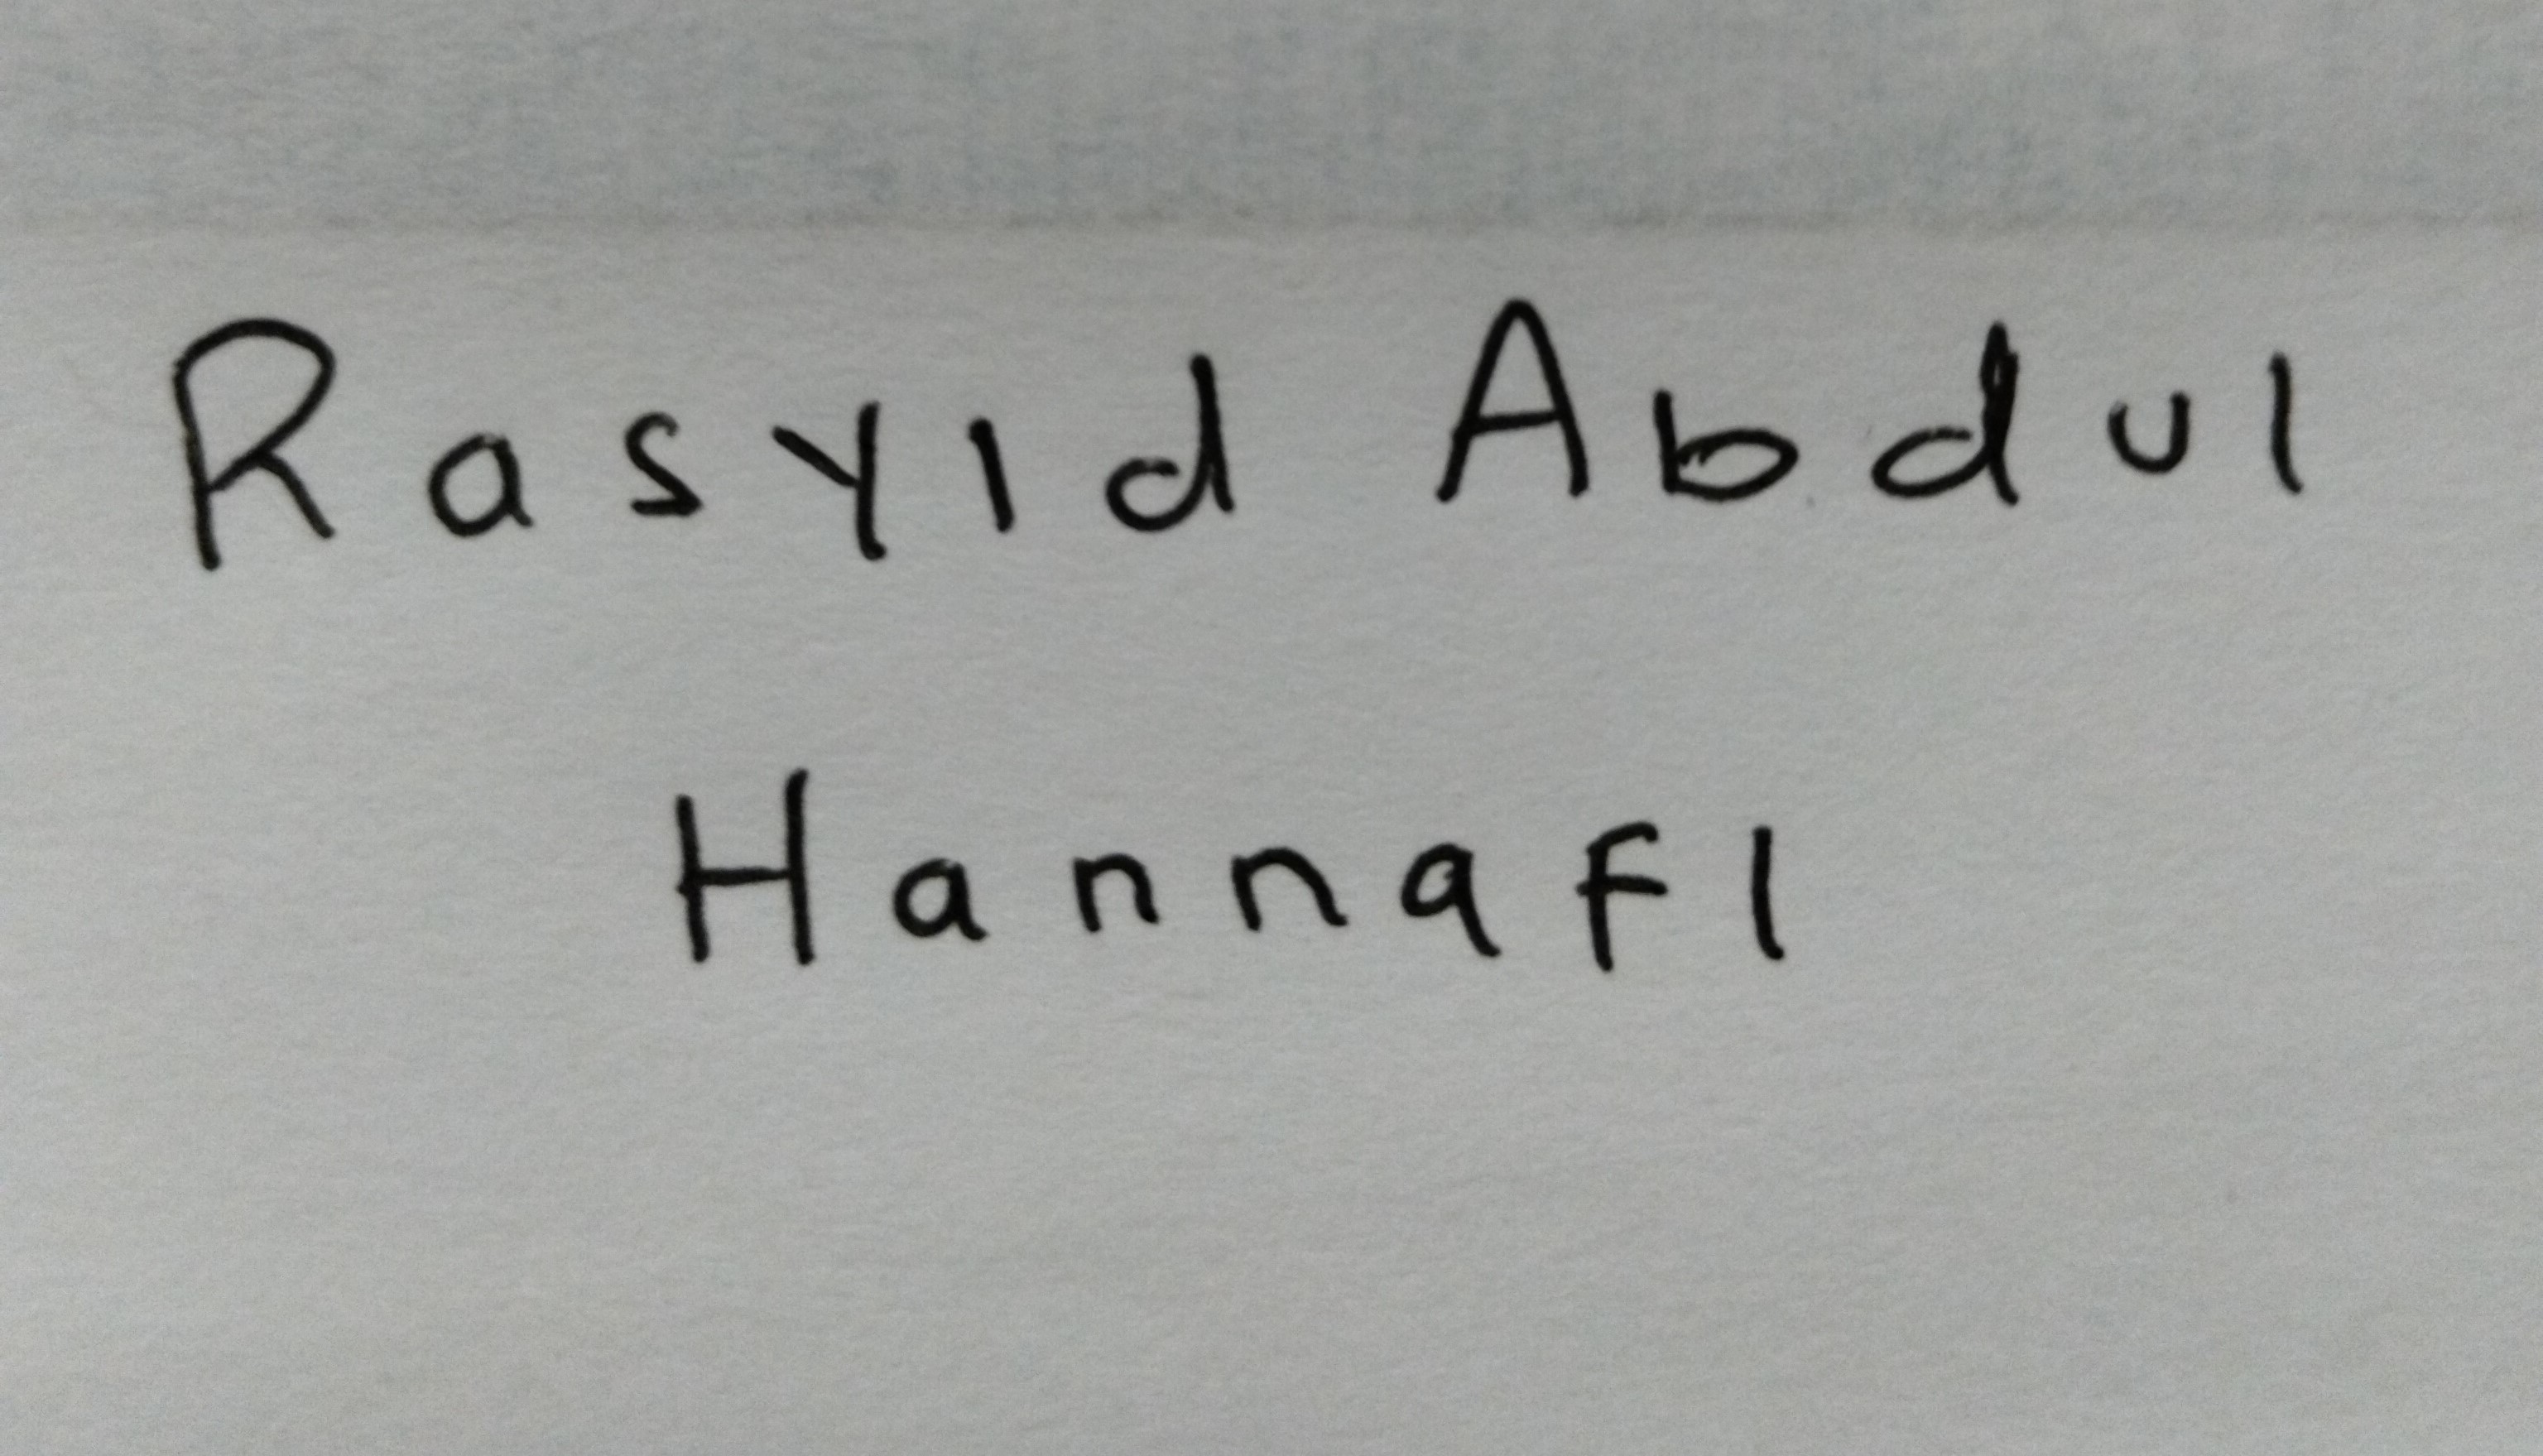 Rasyid Abdul
Hannafi